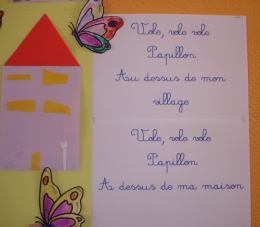 Vole, vole vole
Papillon
Au dessus de mon
village
Vole, vole vole
Papillon
Au dessus de ma maison